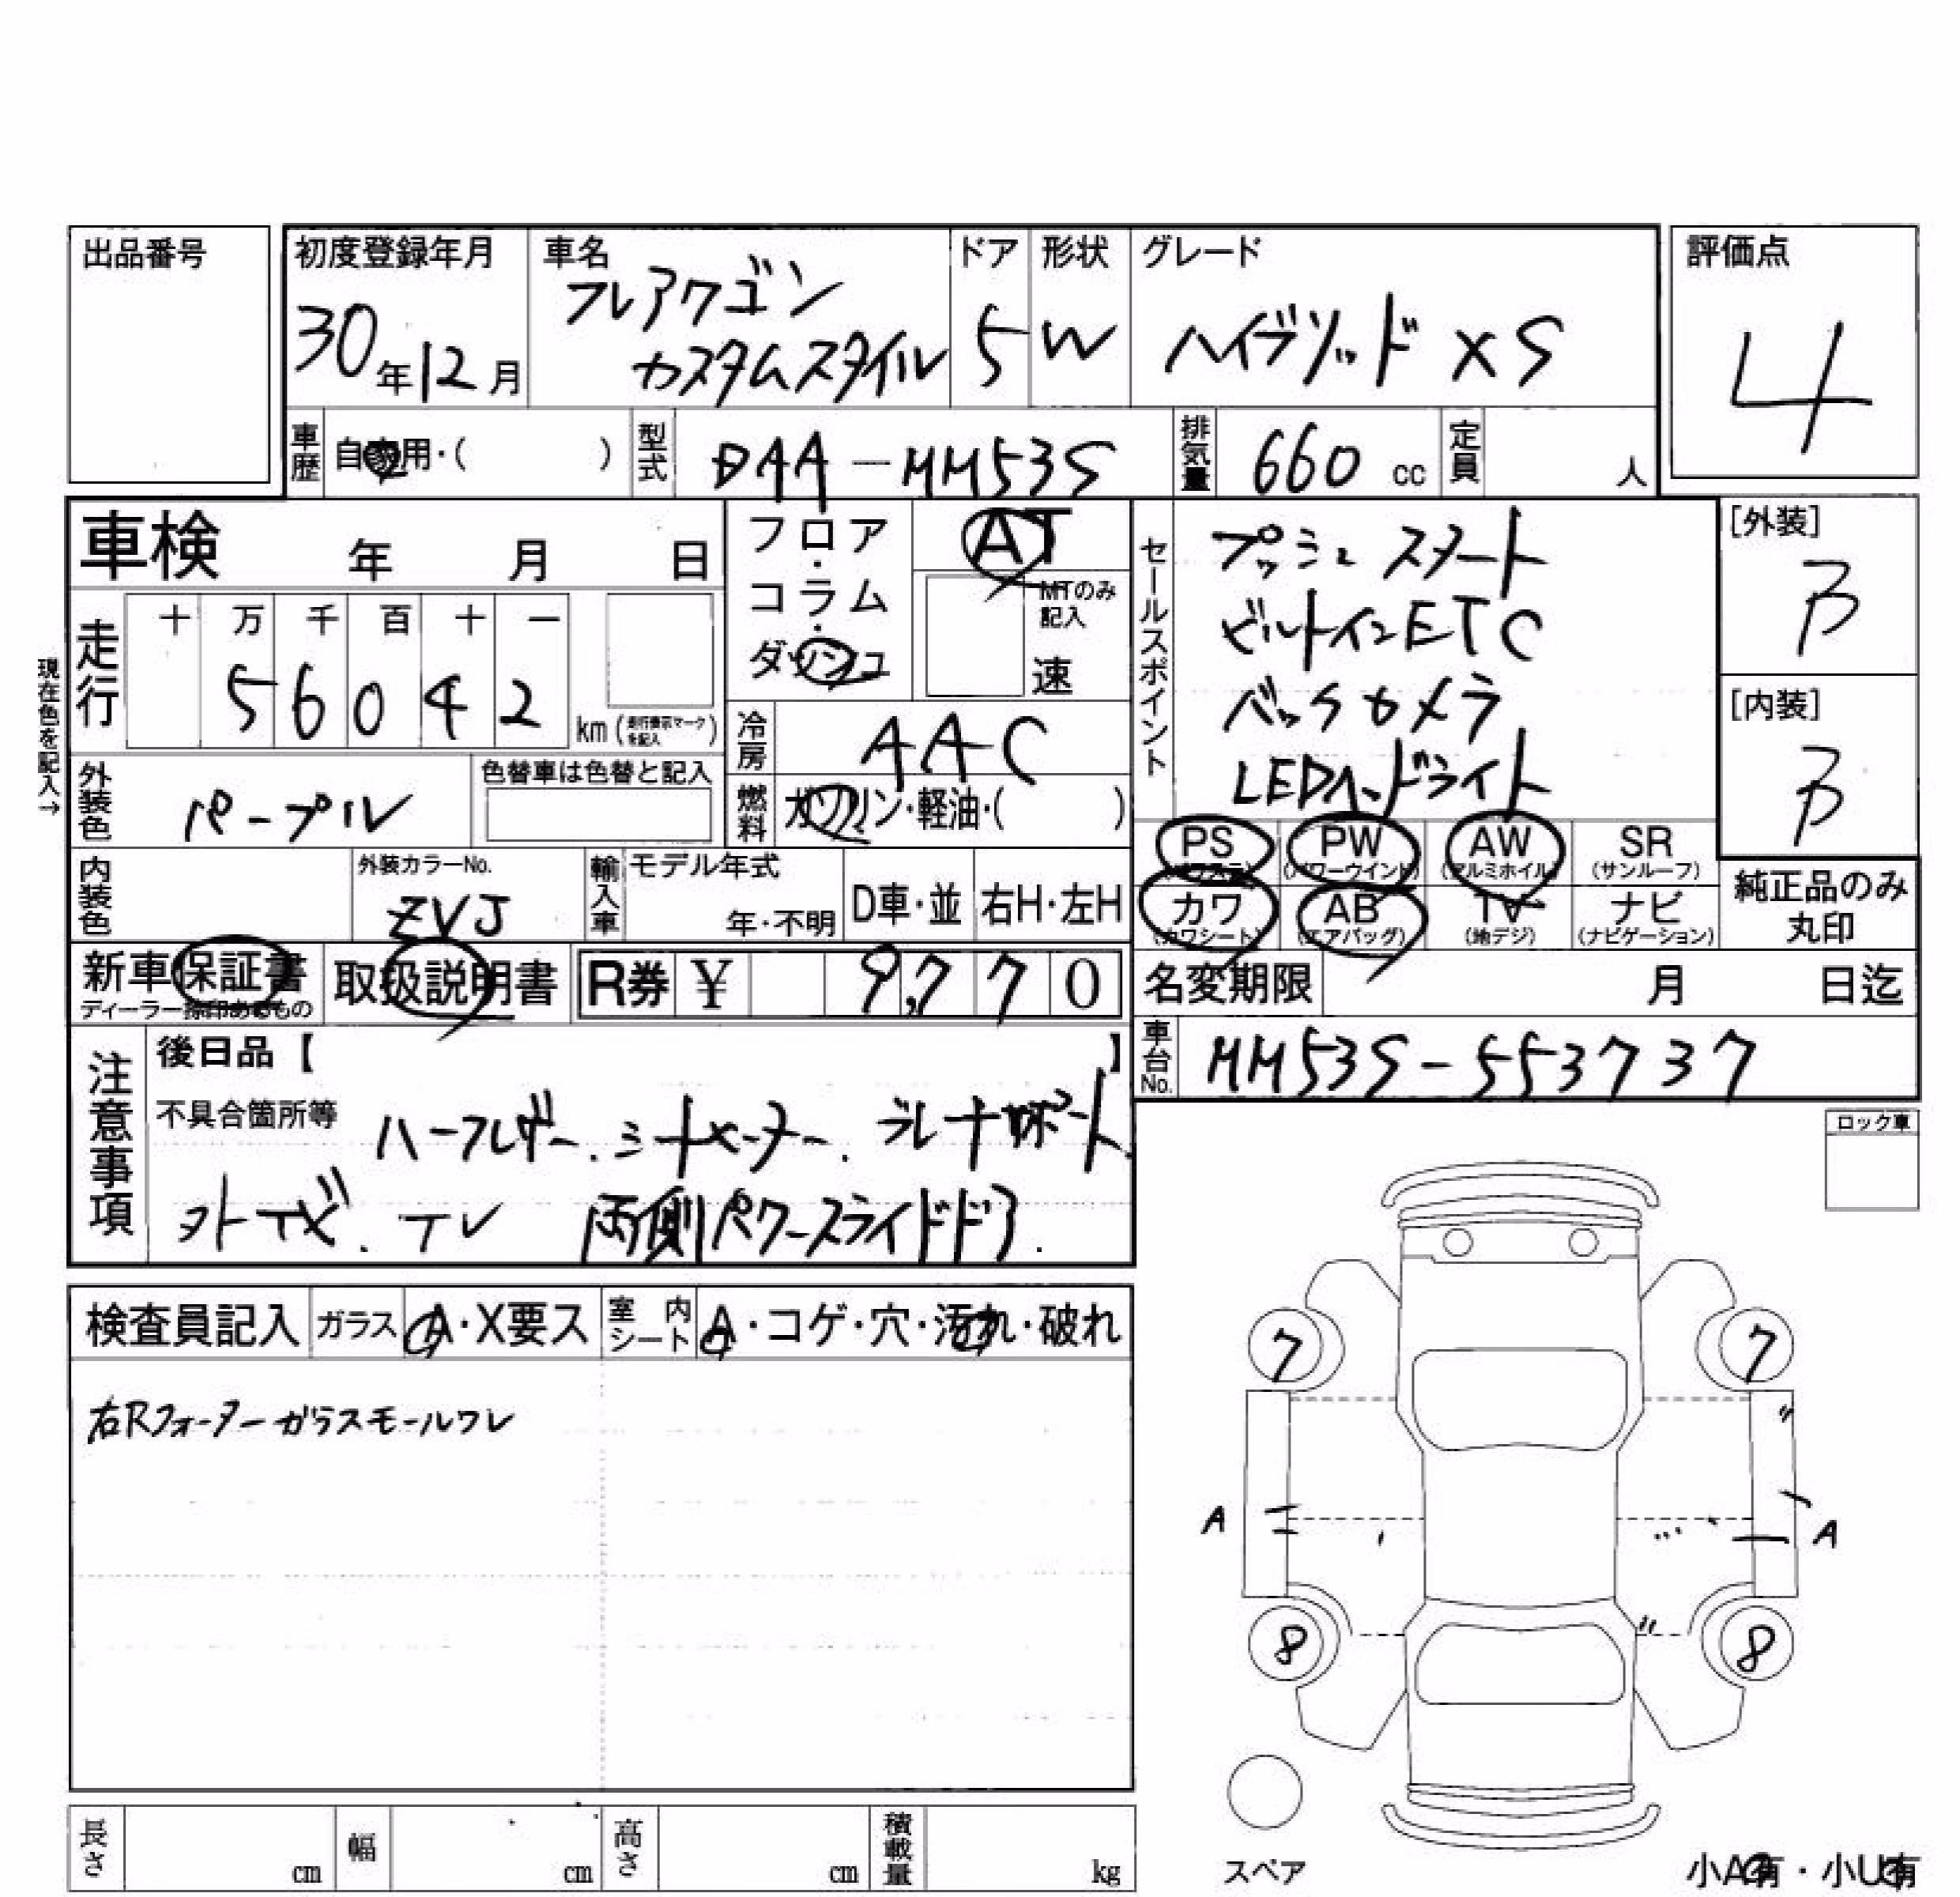 出品番号
初度登録年月
30年12月
車名
フレアワゴン
カスタムスタイル
ドア
5
形状
W
グレード
ハイブリッド XS
評価点
4
車歴
自家用・( )
型式
DAA-MM53S
排気量
660 cc
定員
人
車検 年 月 日
フロア・コラム・ダッシュ
AT
MTのみ記入
速
現在色を記入→
走行
十 万 千 百 十 一
5 6 0 4 2
km(走行表示マークを記入)
冷房
AAC
燃料
ガソリン・軽油・( )
外装色
パープル
色替車は色替と記入
内装色
外装カラーNo.
ZVJ
輸入車
モデル年式
年・不明
D車・並
右H・左H
セールスポイント
プッシュ スタート
ビルトインETC
バックカメラ
LEDヘッドライト
[外装]
B
[内装]
B
PS (パワステ)
PW (パワーウインド)
AW (アルミホイル)
SR (サンルーフ)
カワ (カワシート)
AB (エアバッグ)
TV (地デジ)
ナビ (ナビゲーション)
純正品のみ丸印
新車保証書
ディーラー捺印あるもの
取扱説明書
R券 ¥ 9,770
名変期限 月 日迄
車台No.
MM53S-553737
注意事項
後日品【 】
不具合箇所等
ハーフレザー. シートヒーター. ブレーキサポート.
. TV 両側パワースライドドア.
ロック車
検査員記入
ガラス
A・X要ス
室内シート
A・コゲ・穴・汚れ・破れ
右Rクォーターガラスモールワレ
7
7
A
A
8
8
スペア
長さ
cm
幅
cm
高さ
cm
積載量
kg
小A有・小U有